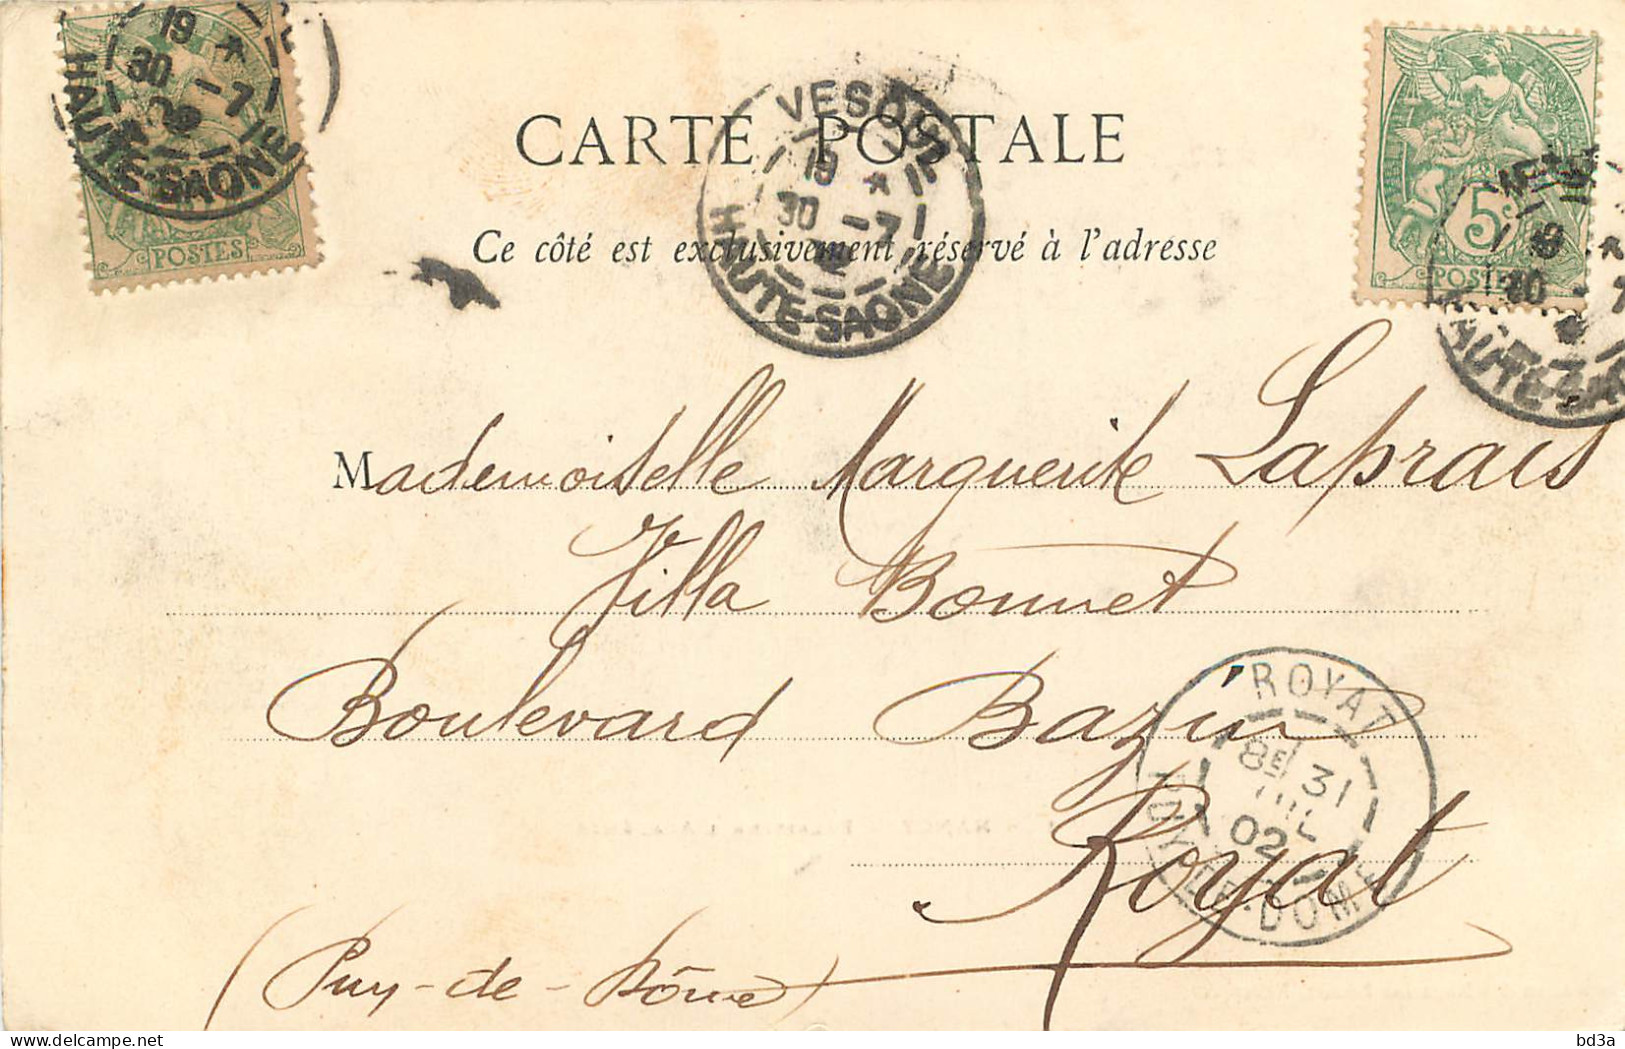 CARTE POSTALE
Ce côté est exclusivement réservé à l'adresse
VESOUL
19 * 
30 -7
HAUTE-SAONE
19 *
30 -7
HAUTE-SAONE
POSTES
5c
POSTES
30 - 7
Mademoiselle Marguerite Laprais
Villa Bonnet
Boulevard Bazin
Royat
(Puy-de-Dôme)
ROYAT
8E 31
JUIL
02
PUY-DE-DOME
delcampe.net
bd3a